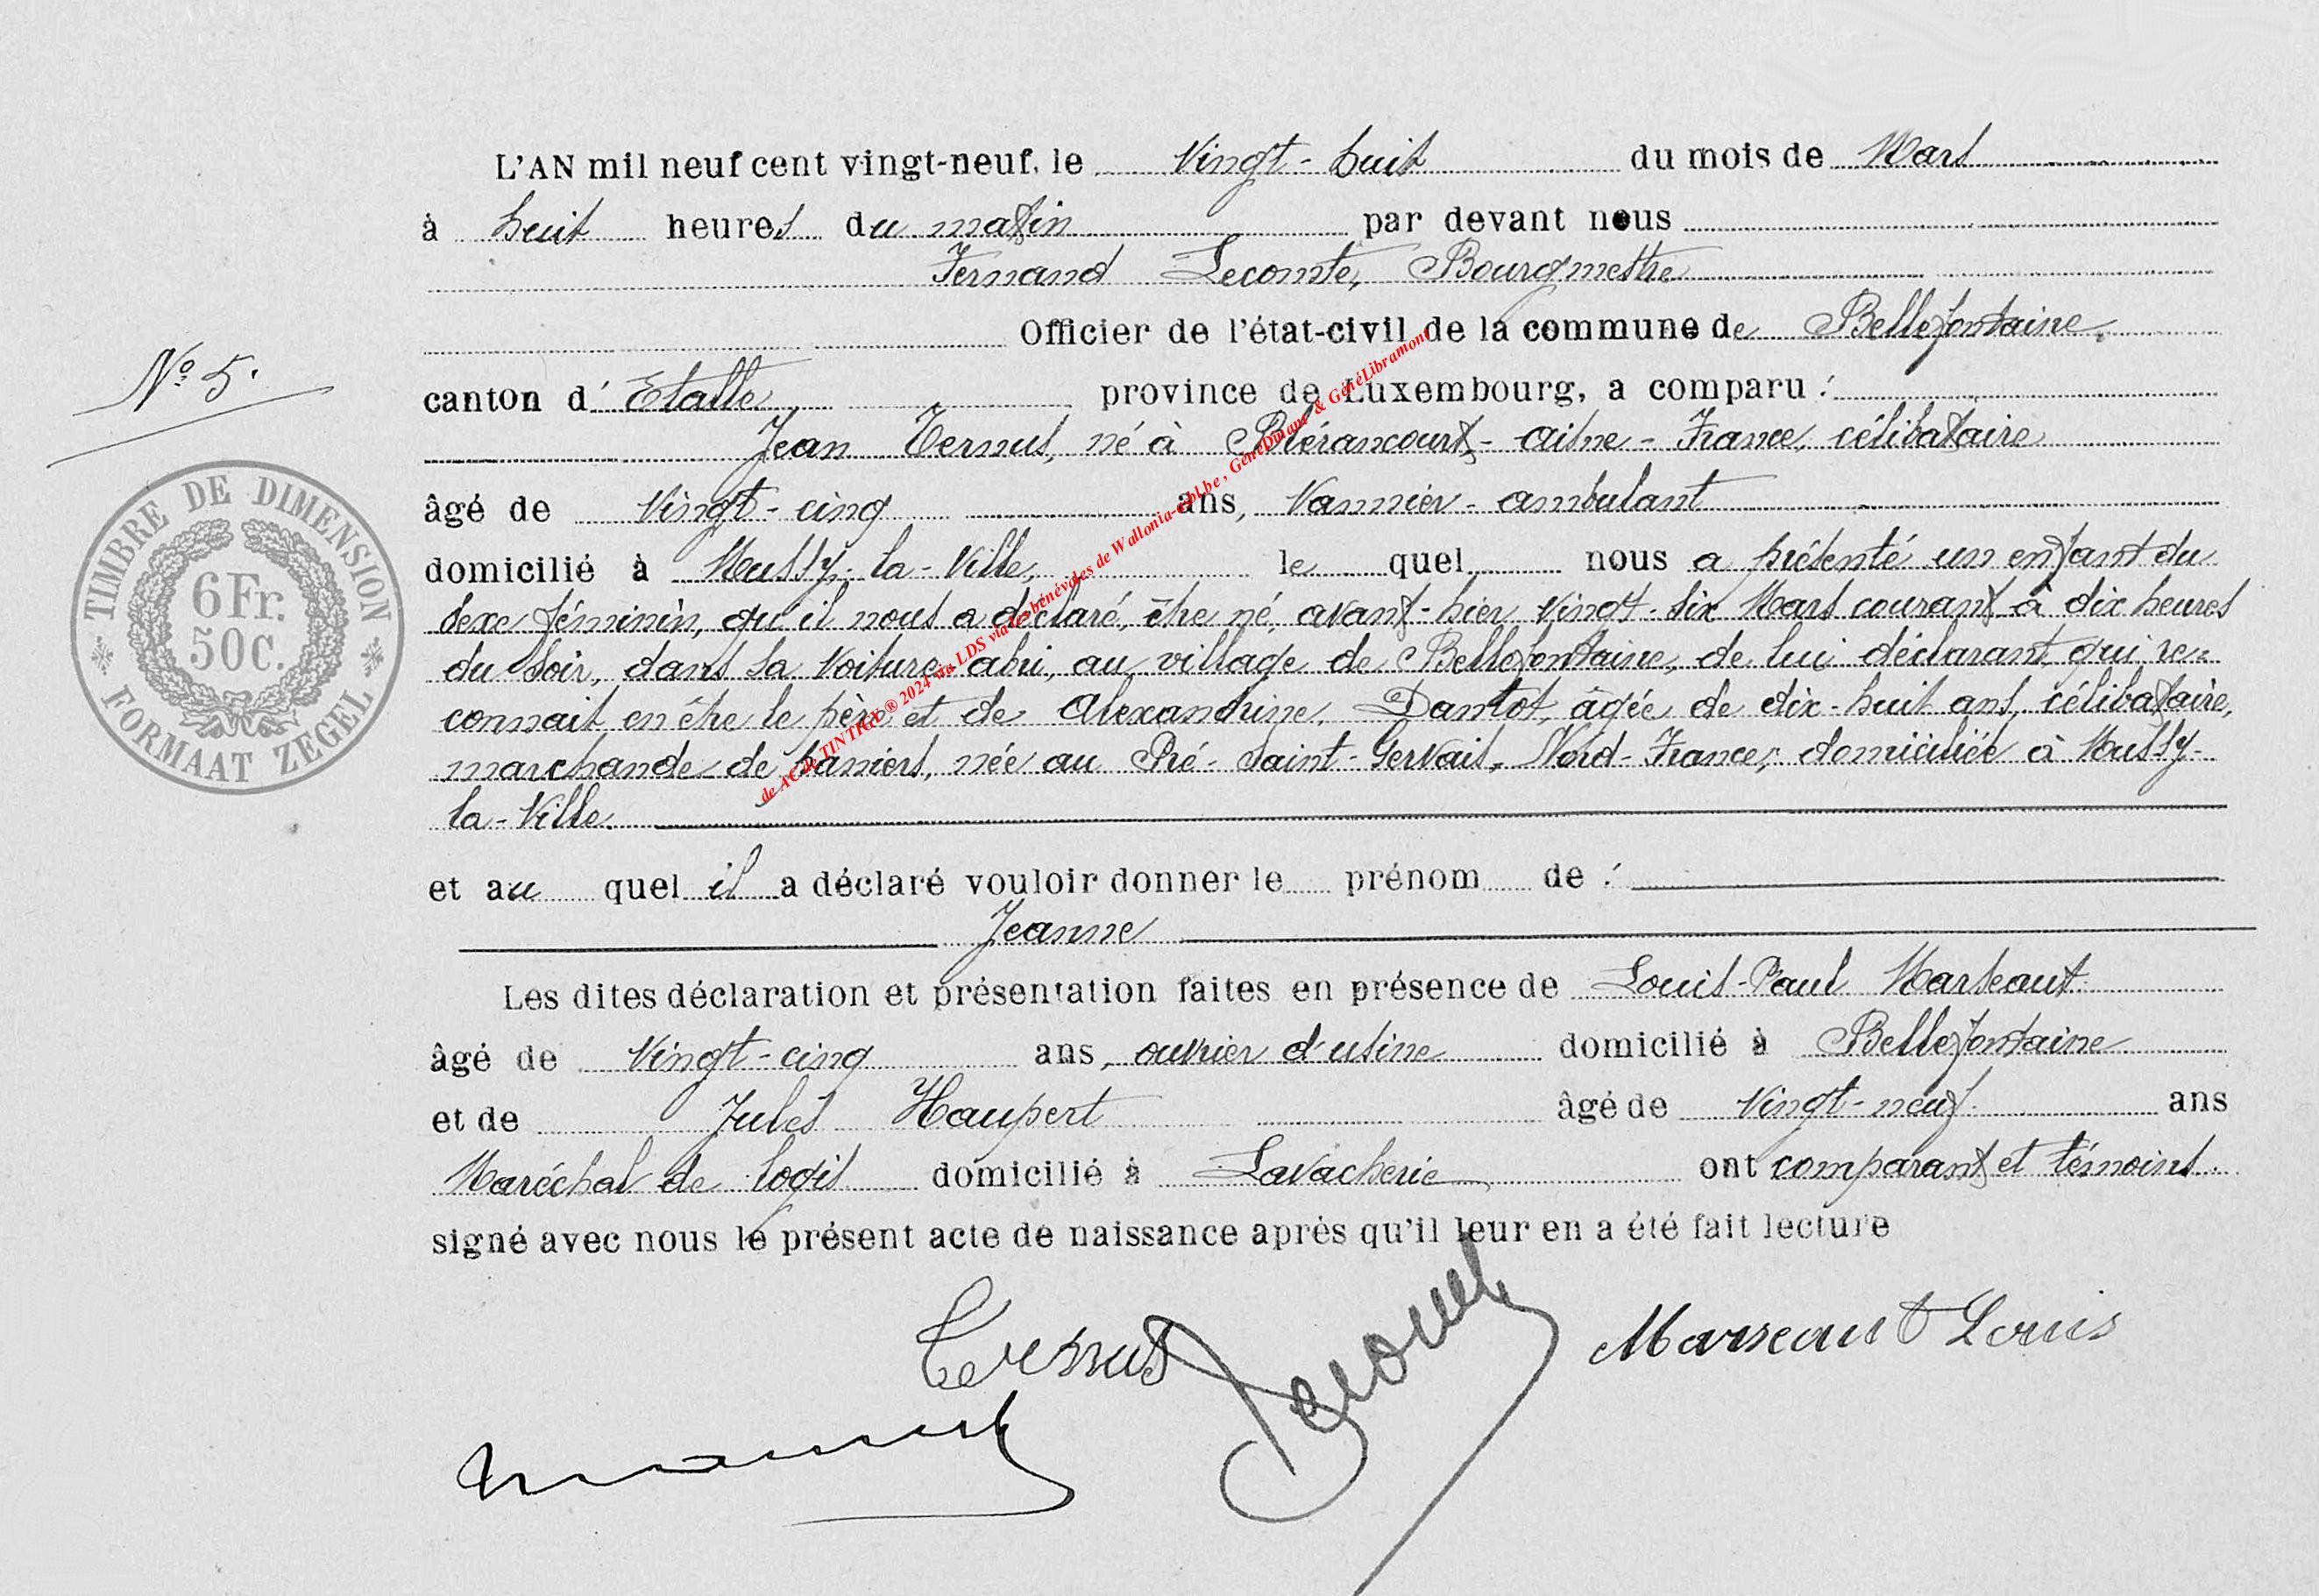 L'AN mil neuf cent vingt-neuf, le Vingt-huit du mois de Mars
à huit heures du matin par devant nous
Fernand Lecomte, Bourgmestre
Officier de l'état-civil de la commune de Bellefontaine,
N° 5.
canton d'Etalle province de Luxembourg, a comparu :
Jean Ternus, né à Blérancourt - Aisne - France, célibataire
âgé de Vingt-cinq ans, Vannier-ambulant
domicilié à Mussy-la-Ville, le quel nous a présenté un enfant du
sexe féminin, qu'il nous a déclaré, être né, avant-hier Vingt-six Mars courant à dix heures
du soir, dans sa voiture-abri, au village de Bellefontaine, de lui déclarant, qui re=
connait en être le père et de Alexandrine Dantot, âgée de dix-huit ans, célibataire,
marchande de paniers, née au Pré-Saint-Gervais, Nord-France, domiciliée à Mussy-
la-Ville.
et au quel il a déclaré vouloir donner le prénom de :
Jeanne
Les dites déclaration et présentation faites en présence de Louis-Paul Marseaut
âgé de Vingt-cinq ans, ouvrier d'usine domicilié à Bellefontaine
et de Jules Haupert âgé de Vingt-neuf ans
Maréchal de logis domicilié à Lavacherie ont comparant et témoins
signé avec nous le présent acte de naissance après qu'il leur en a été fait lecture
Ternus
Marseaut Louis
TIMBRE DE DIMENSION
6 Fr.
50 C.
FORMAAT ZEGEL
de AC de TINTIGNY ® 2024 via LDS via les bénévoles de Wallonia-asbl.be, GénéDinant & GénéLibramont